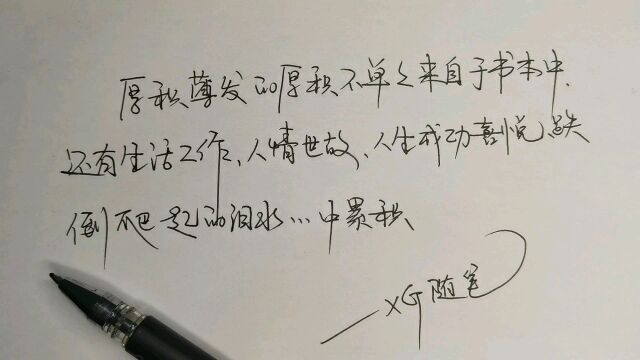 厚积薄发的厚积不单单来自于书本中.
还有生活工作、人情世故、人生成功喜悦、跌
倒爬起的泪水…中累积
—XG随笔